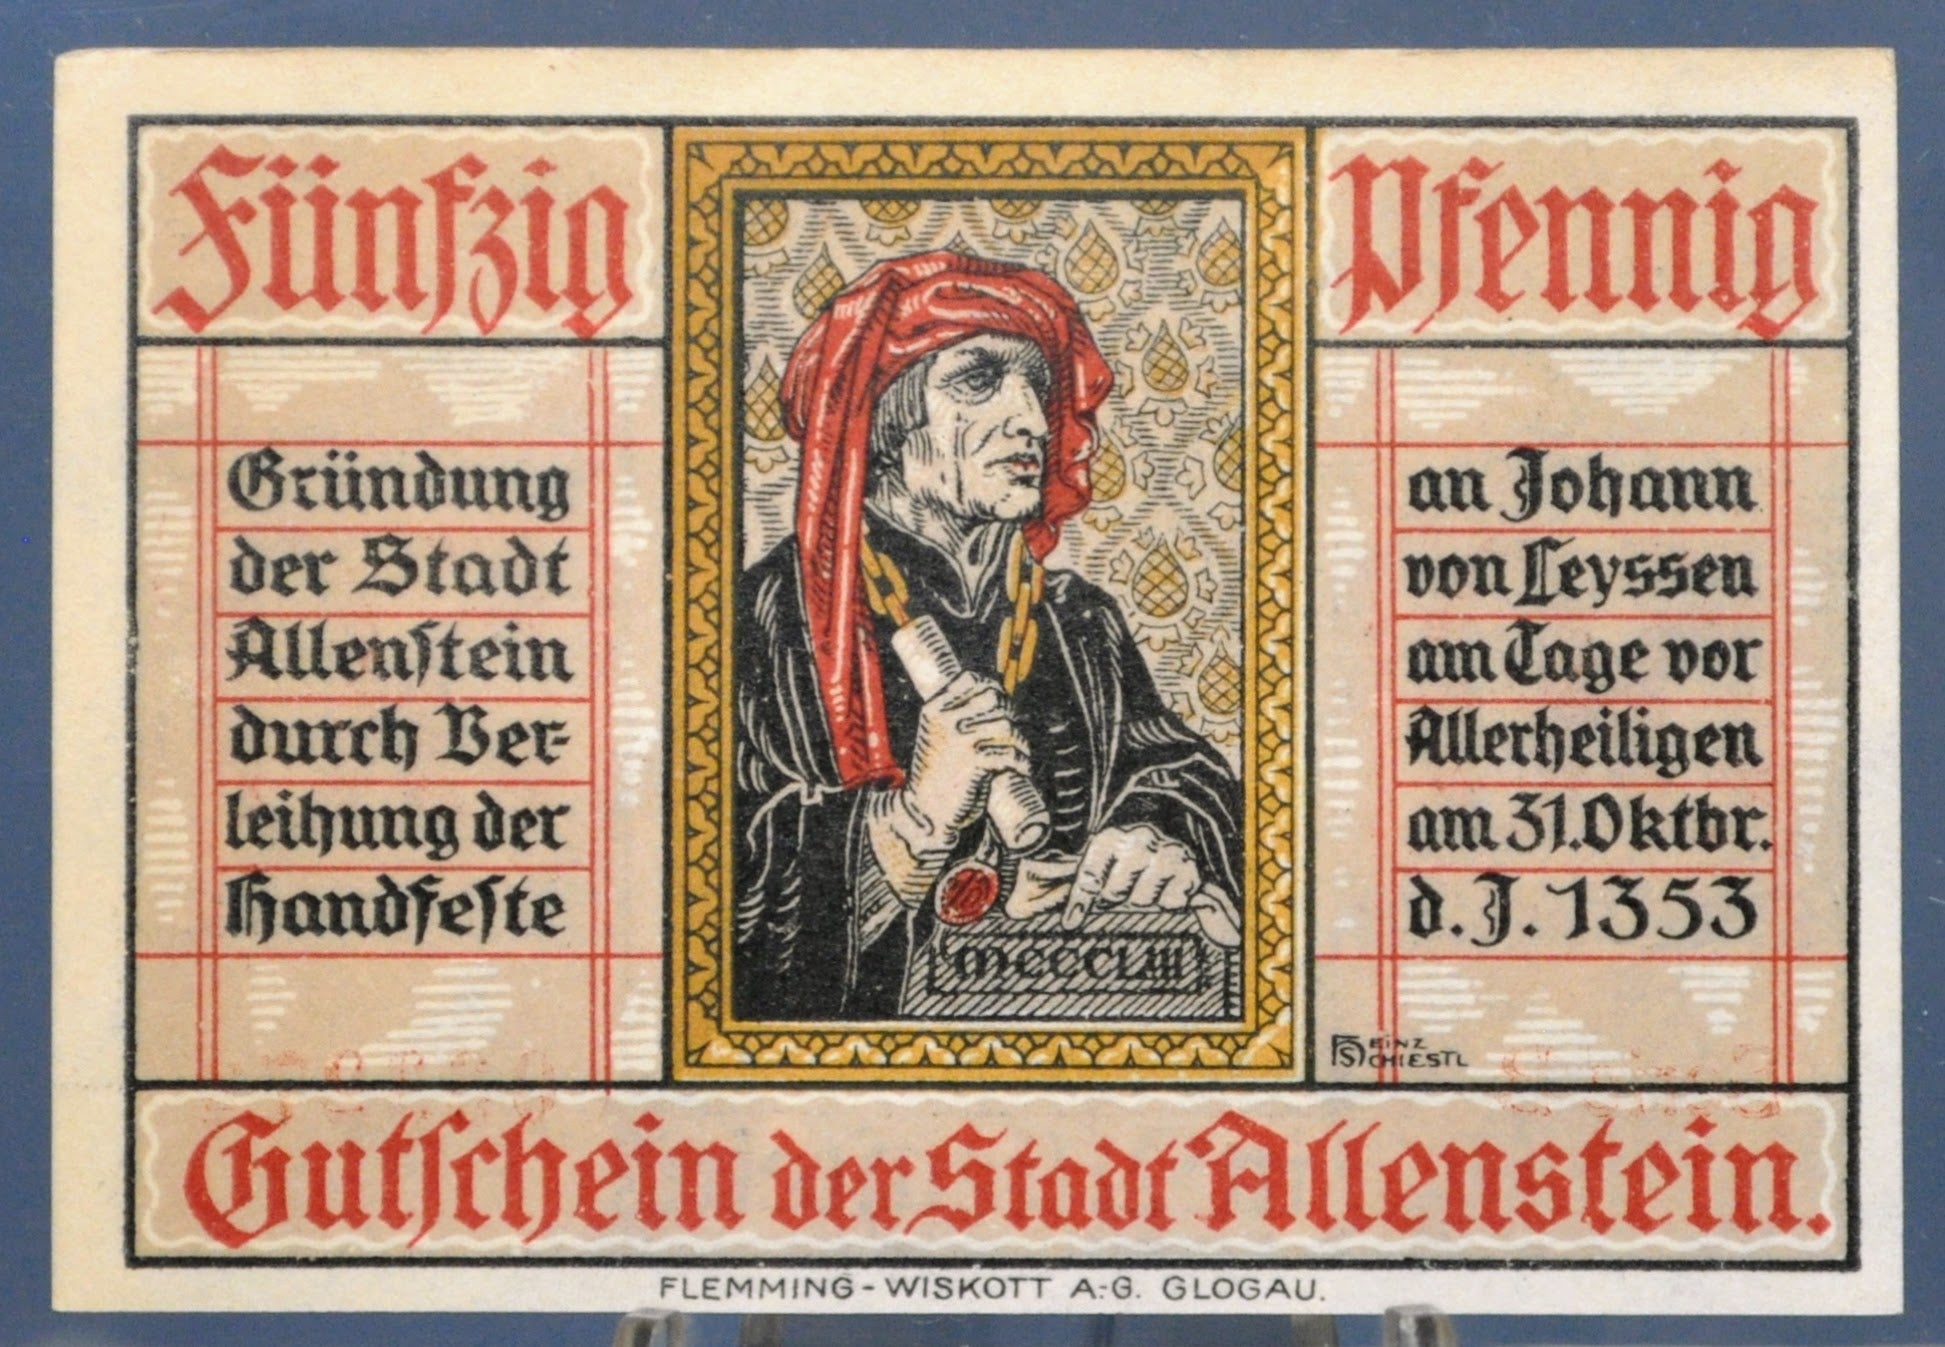 Fünfzig
Pfennig
Gründung
der Stadt
Allenstein
durch Ver-
leihung der
Handfeste
an Johann
von Leyssen
am Tage vor
Allerheiligen
am 31. Oktbr.
d. J. 1353
MCCCLIII
HEINZ
SCHIESTL
Gutschein der Stadt Allenstein.
FLEMMING-WISKOTT A.-G. GLOGAU.